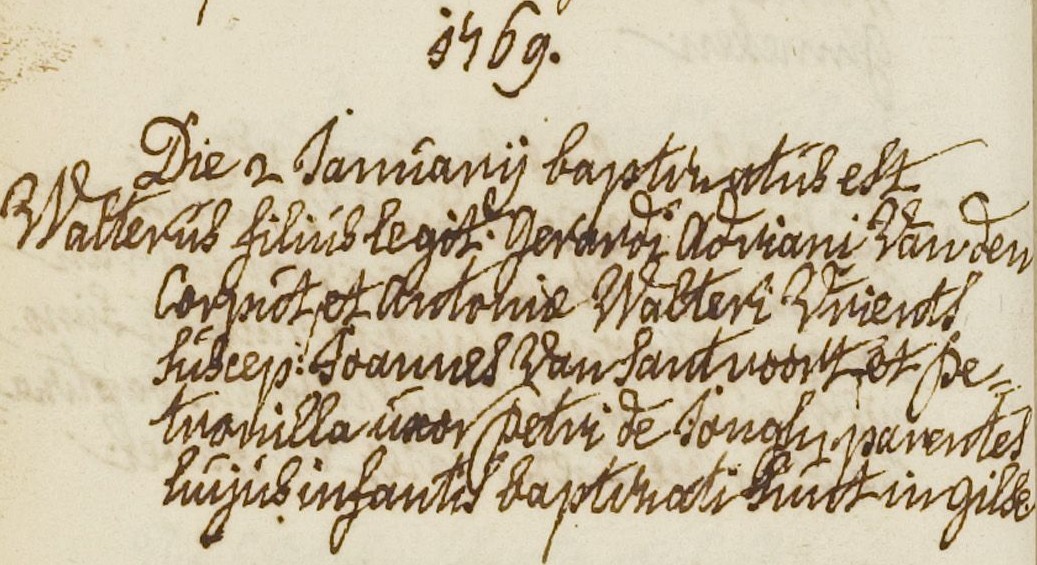 1769.
Die 2 Januarij baptizatus est
Walterus filius legit: Gerardi Adriani Van den
Corput et Antoniæ Walteri Vrients
suscep: Joannes Van Santvoort et Pe-
tronilla uxor Petri de Jongh, parentes
huijus infantis baptizati sunt in gilse